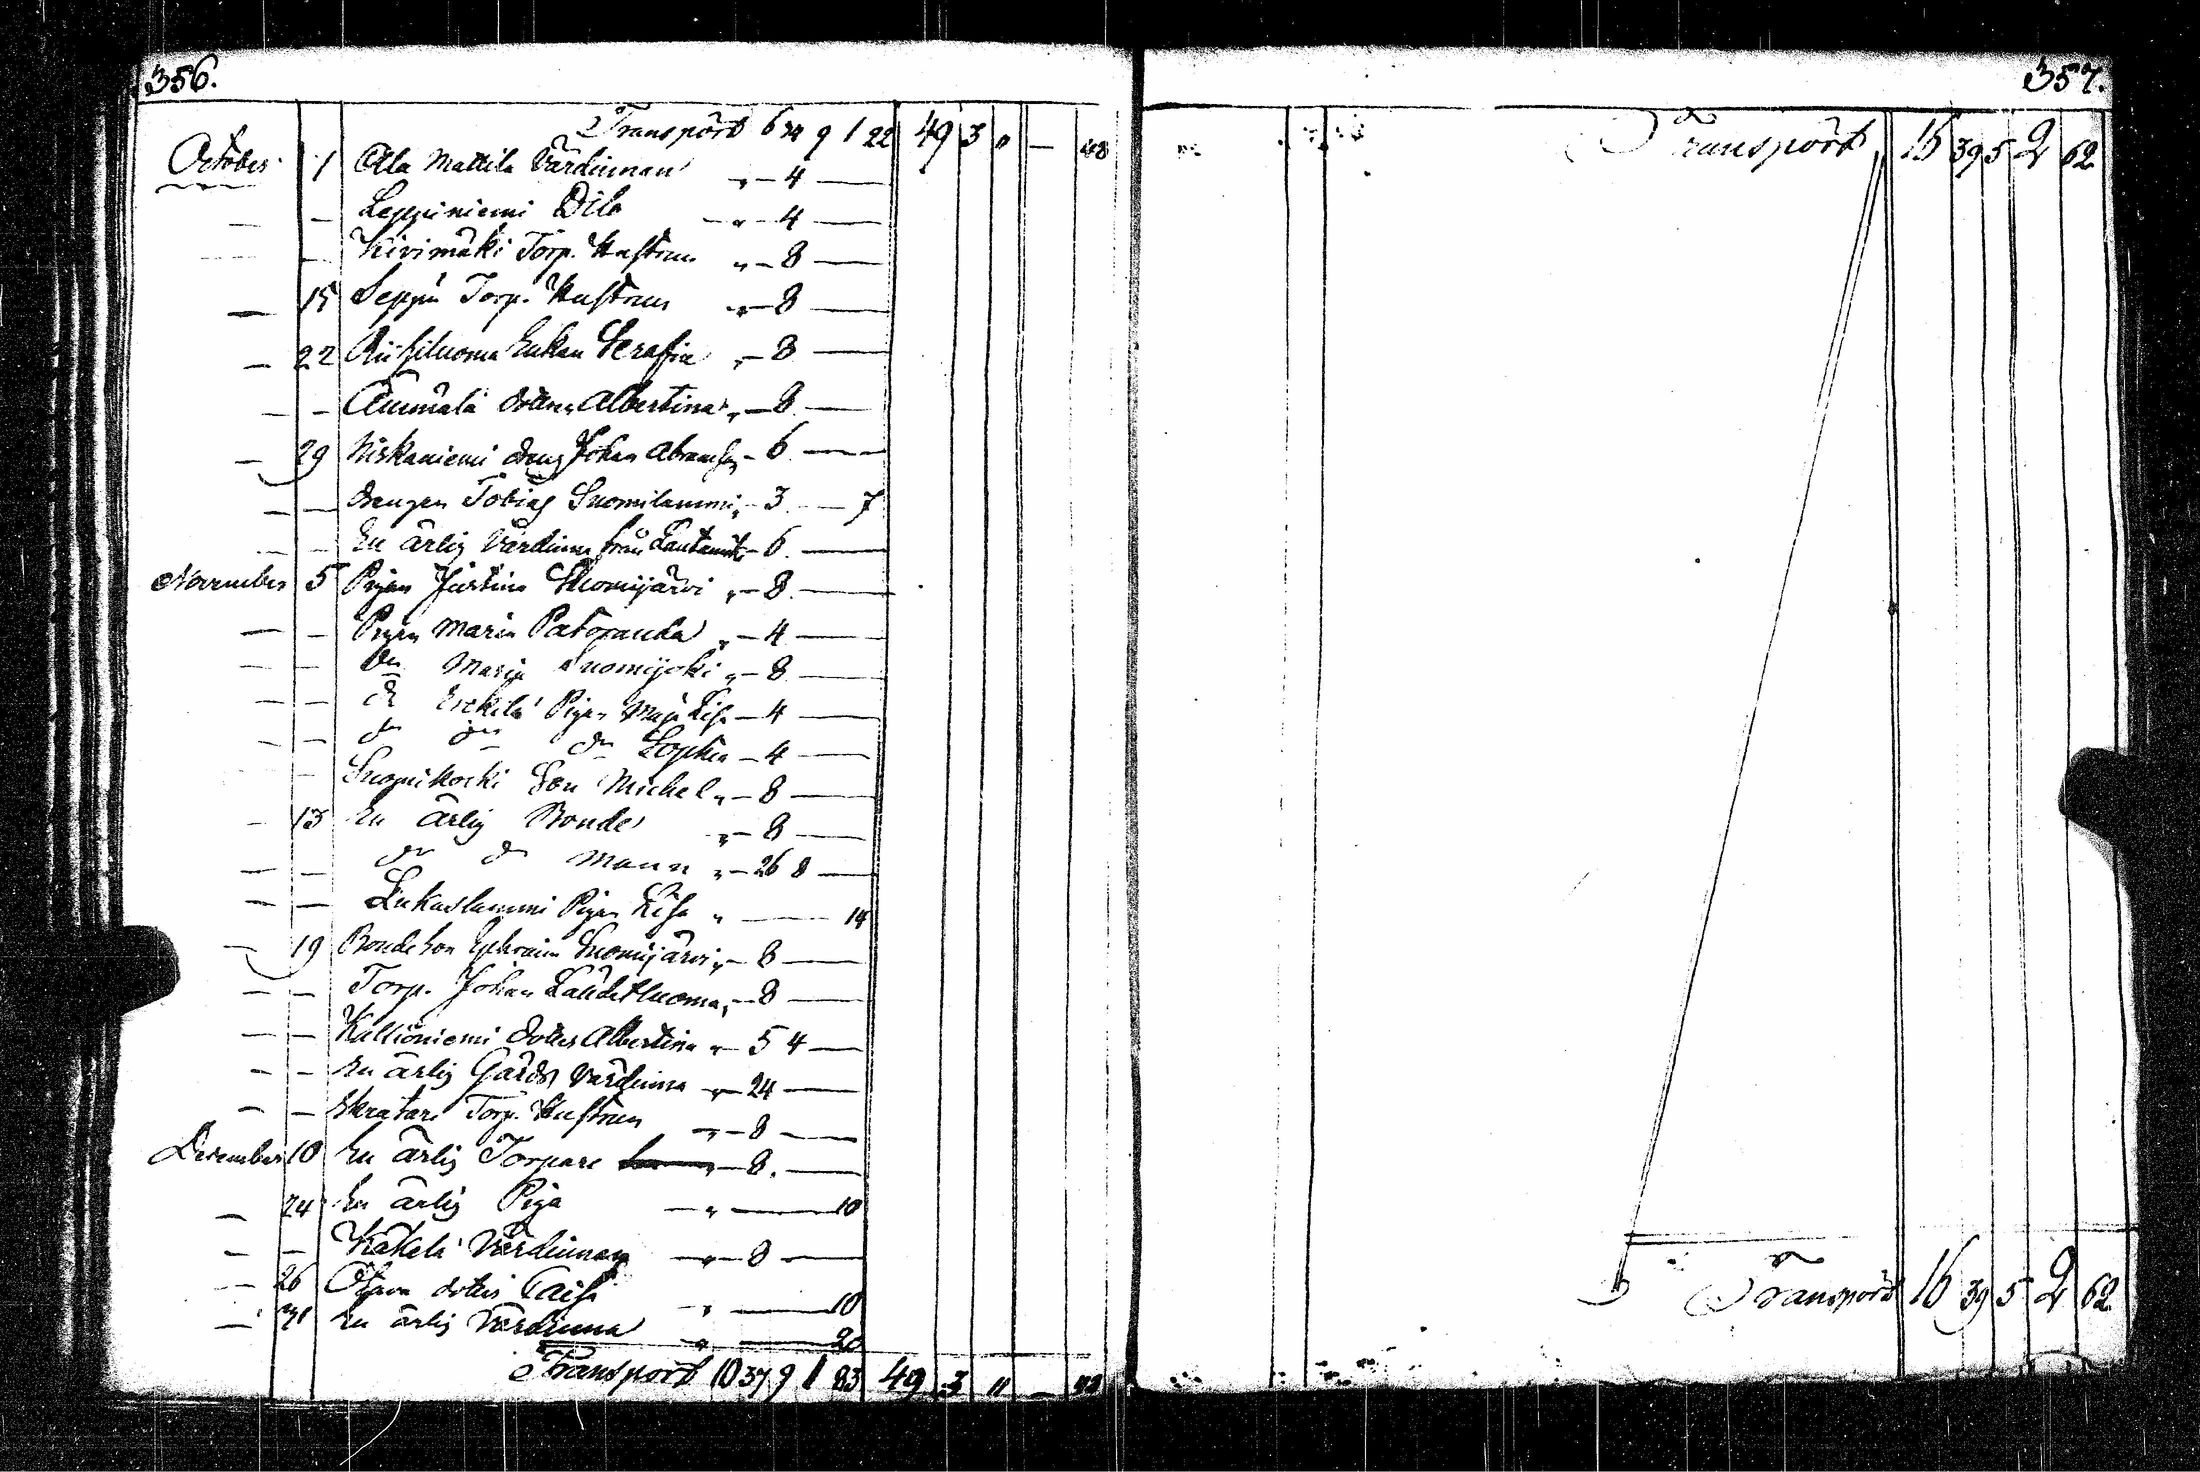 356.
Transport 6 34 9 1 22 49 3 " — 48
October 1 Ala Mattila Värdinnan " — 4 —
— — Leppiniemi Dito — " — 4 —
— — Kivimäki Torp. Hustrun " — 8 —
— 15 Seppü Torp. Hustrun " — 8 —
— 22 Enkan Serafia " — 8 —
— — dotter Albertina " — 8 —
— 29 Niskaniemi dreng Johan — 6 —
— — drengen Tobias Suomilammi " — 3 — 7
— — En ärlig Värdinna från — 6 —
November 5 Pigan Justina Suomijärvi " — 8 —
— — Pigan Maria " — 4 —
— — do Maria Suomijoki " — 8 —
— — do Erkilä Pigan Maja Lisa — 4 —
— — do do do Sophia — 4 —
— Son Michel " — 8 —
— 13 En ärlig Bonde " — 8 —
— — do do Mann " — 26 8 —
— — Lukaslammi Pigan Lisa " — 14
— 19 Bonde Son Ephraim Suomijärvi " — 8 —
— — Torp. Johan " — 8 —
— — Kallioniemi dotter Albertina " — 5 4 —
— — En ärlig Gårds Värdinna " — 24 —
— — Torp. Hustrun — " — 8 —
December 10 En ärlig Torpare " — 8. —
— 24 En ärlig Piga — " — 10
— — Käkelä Värdinnan — " — 8 —
— 26 dotter Caisa " — 10
— 31 En ärlig Värdinna " — 20
Transport 10 37 9 1 83 49 3 11 — 48
357.
Transport 16 39 5 2 62
Transport 16 39 5 2 62